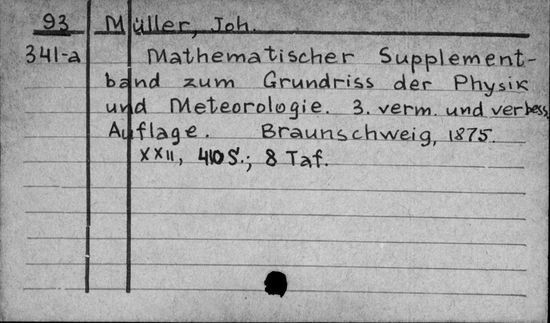 93 Müller, Joh.
341-a Mathematischer Supplement-
band zum Grundriss der Physik
und Meteorologie. 3. verm. und verbess.
Auflage. Braunschweig, 1875.
XXII, 410 S.; 8 Taf.